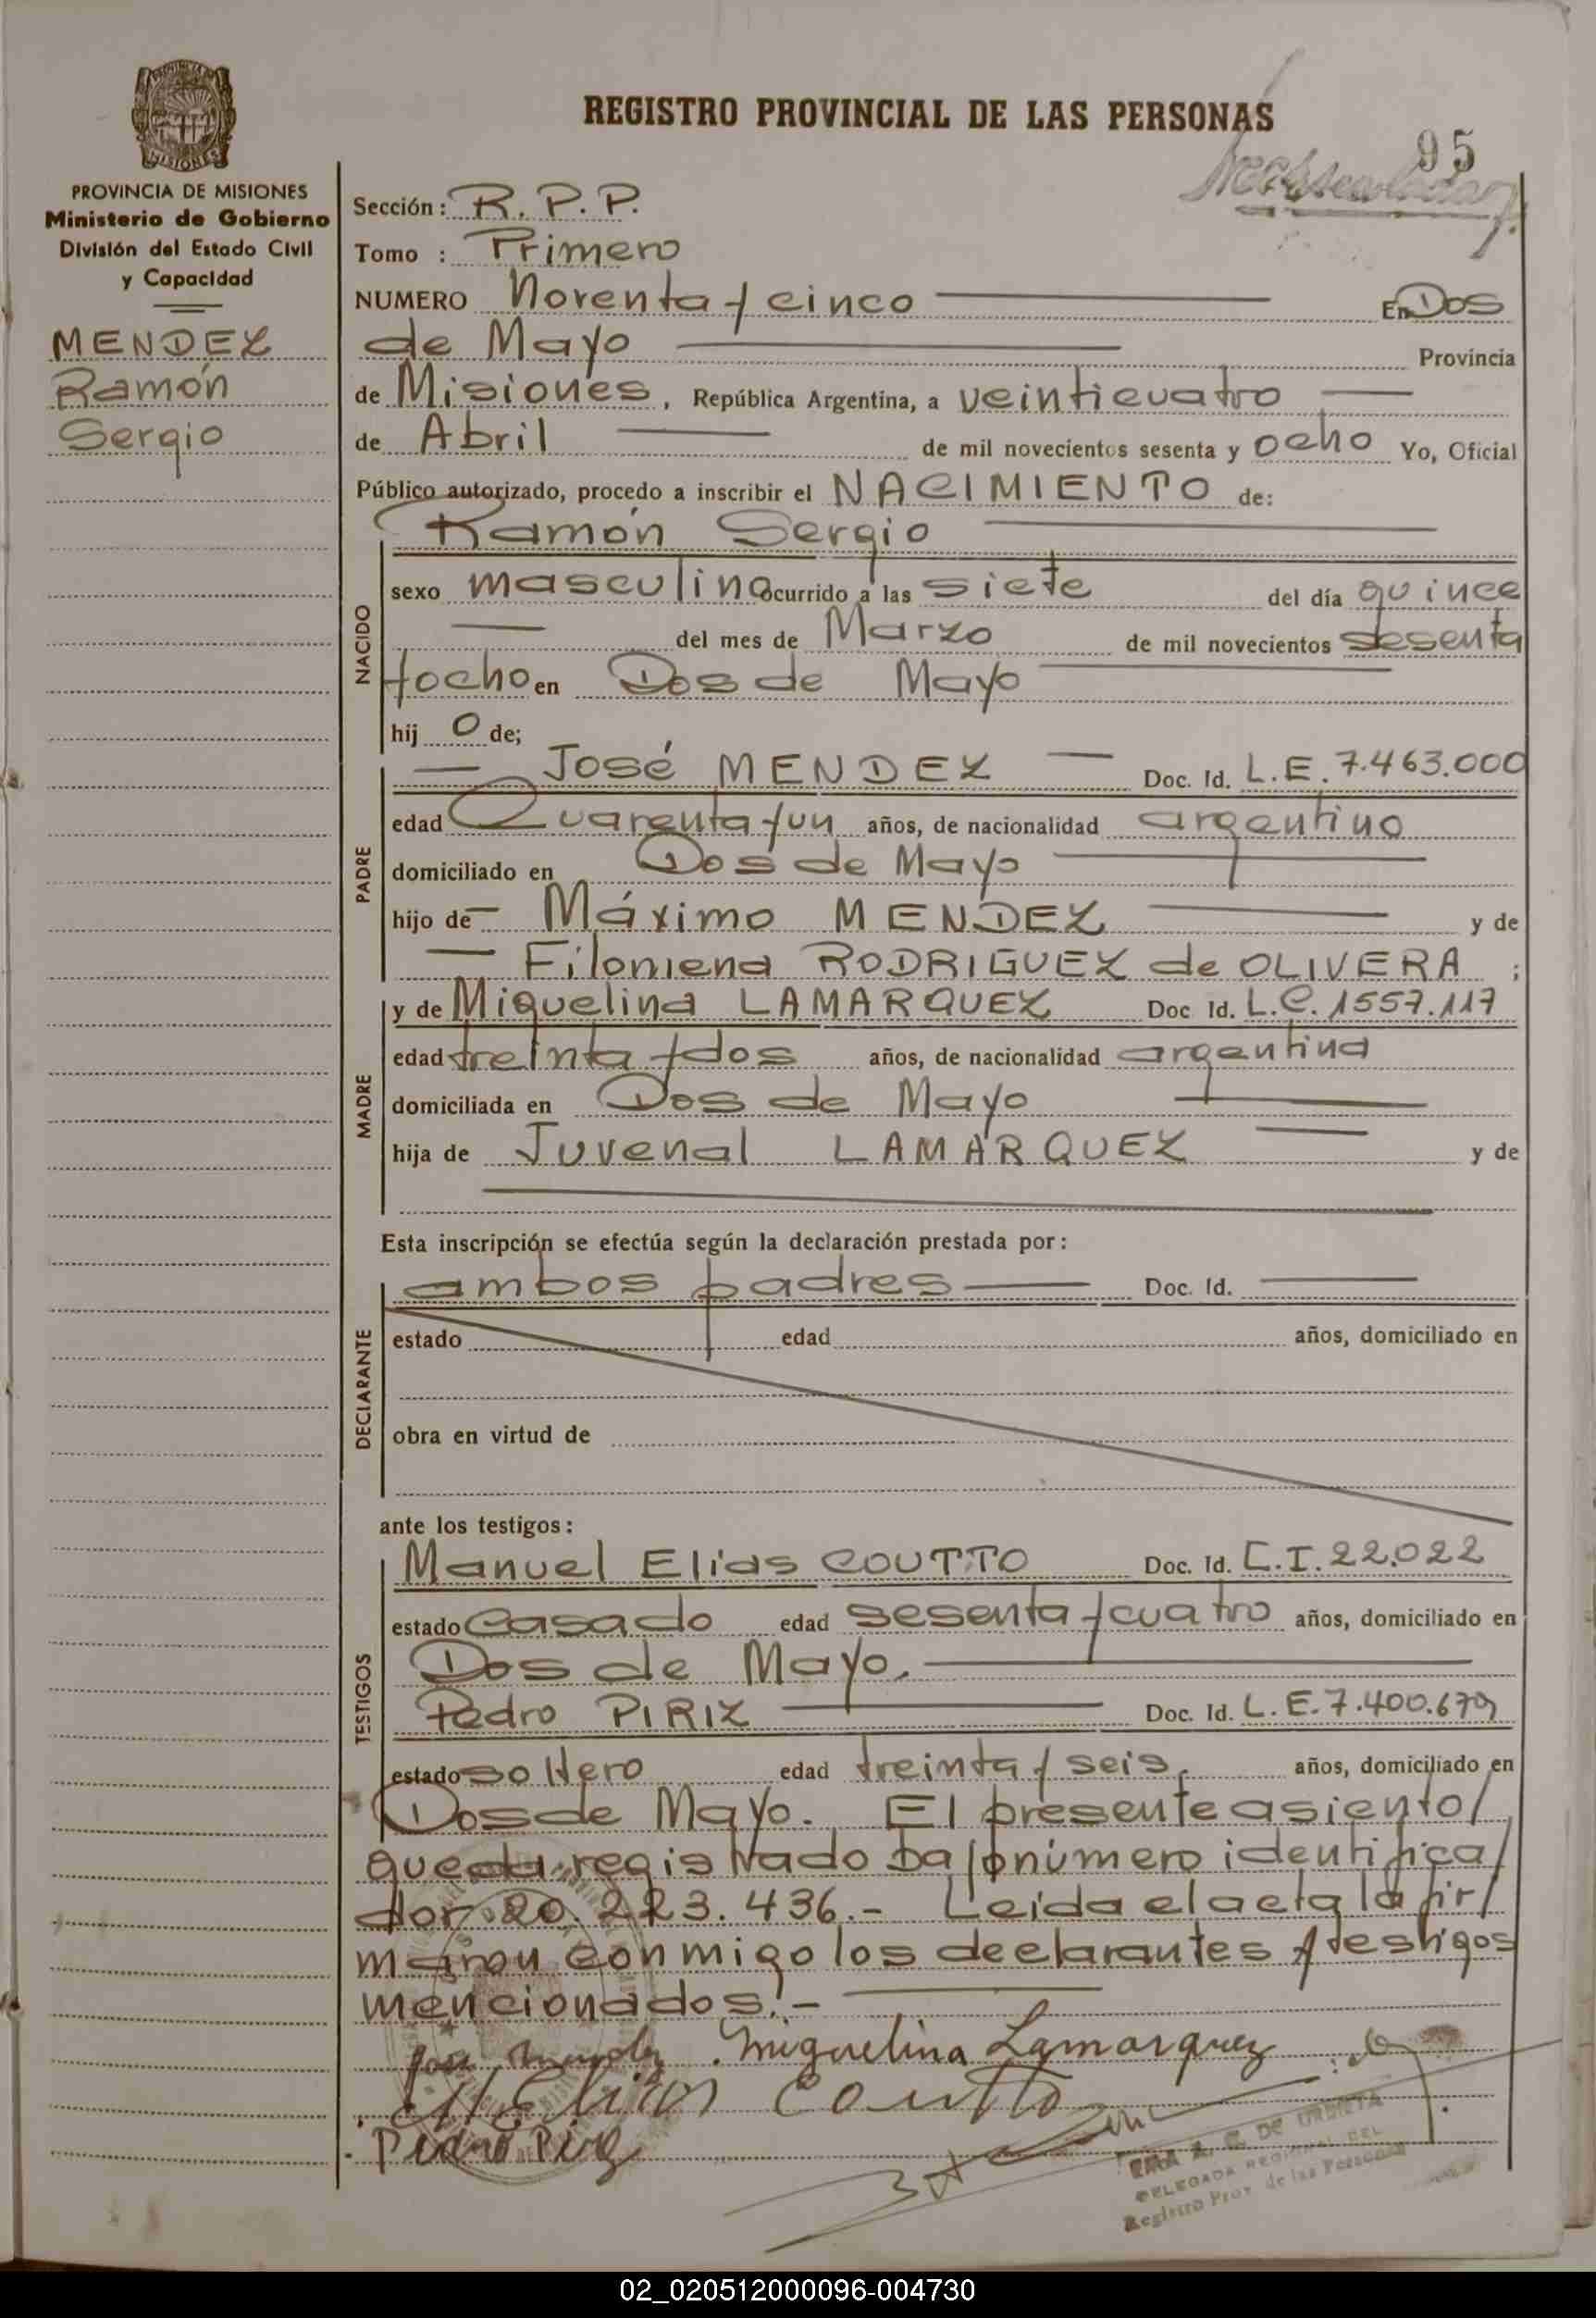 REGISTRO PROVINCIAL DE LAS PERSONAS
95
MISIONES
PROVINCIA DE MISIONES
Ministerio de Gobierno
División del Estado Civil
y Capacidad
MENDEZ
Ramón
Sergio
Sección: R. P. P.
Tomo : Primero
NUMERO Noventa y cinco En Dos
de Mayo Provincia
de Misiones, República Argentina, a veinticuatro
de Abril de mil novecientos sesenta y ocho Yo, Oficial
Público autorizado, procedo a inscribir el NACIMIENTO de:
Ramón Sergio
NACIDO
sexo masculino ocurrido a las siete del día quince
del mes de Marzo de mil novecientos sesenta
y ocho en Dos de Mayo
hij o de;
PADRE
José MENDEZ Doc. Id. L.E. 7.463.000
edad Cuarenta y un años, de nacionalidad argentino
domiciliado en Dos de Mayo
hijo de Máximo MENDEZ y de
Filomena RODRIGUEZ de OLIVERA ;
MADRE
y de Miguelina LAMARQUEZ Doc Id. L.C. 1557.117
edad treinta y dos años, de nacionalidad argentina
domiciliada en Dos de Mayo
hija de Juvenal LAMARQUEZ y de
Esta inscripción se efectúa según la declaración prestada por:
DECLARANTE
ambos padres Doc. Id.
estado edad años, domiciliado en
obra en virtud de
ante los testigos:
TESTIGOS
Manuel Elias COUTTO Doc. Id. C.I. 22.022
estado Casado edad sesenta y cuatro años, domiciliado en
Dos de Mayo.
Pedro PIRIZ Doc. Id. L.E. 7.400.679
estado soltero edad treinta y seis años, domiciliado en
Dos de Mayo. El presente asiento/
queda registrado bajo número identifica/
dor 20.223.436.- Leida el acta la fir/
maron conmigo los declarantes y testigos
mencionados.-
José Mendez Miguelina Lamarquez
M Elias Coutto
Pedro Piriz
DE URBIETA
DELEGADA REGIONAL DEL
Registro Prov. de las Personas
02_020512000096-004730